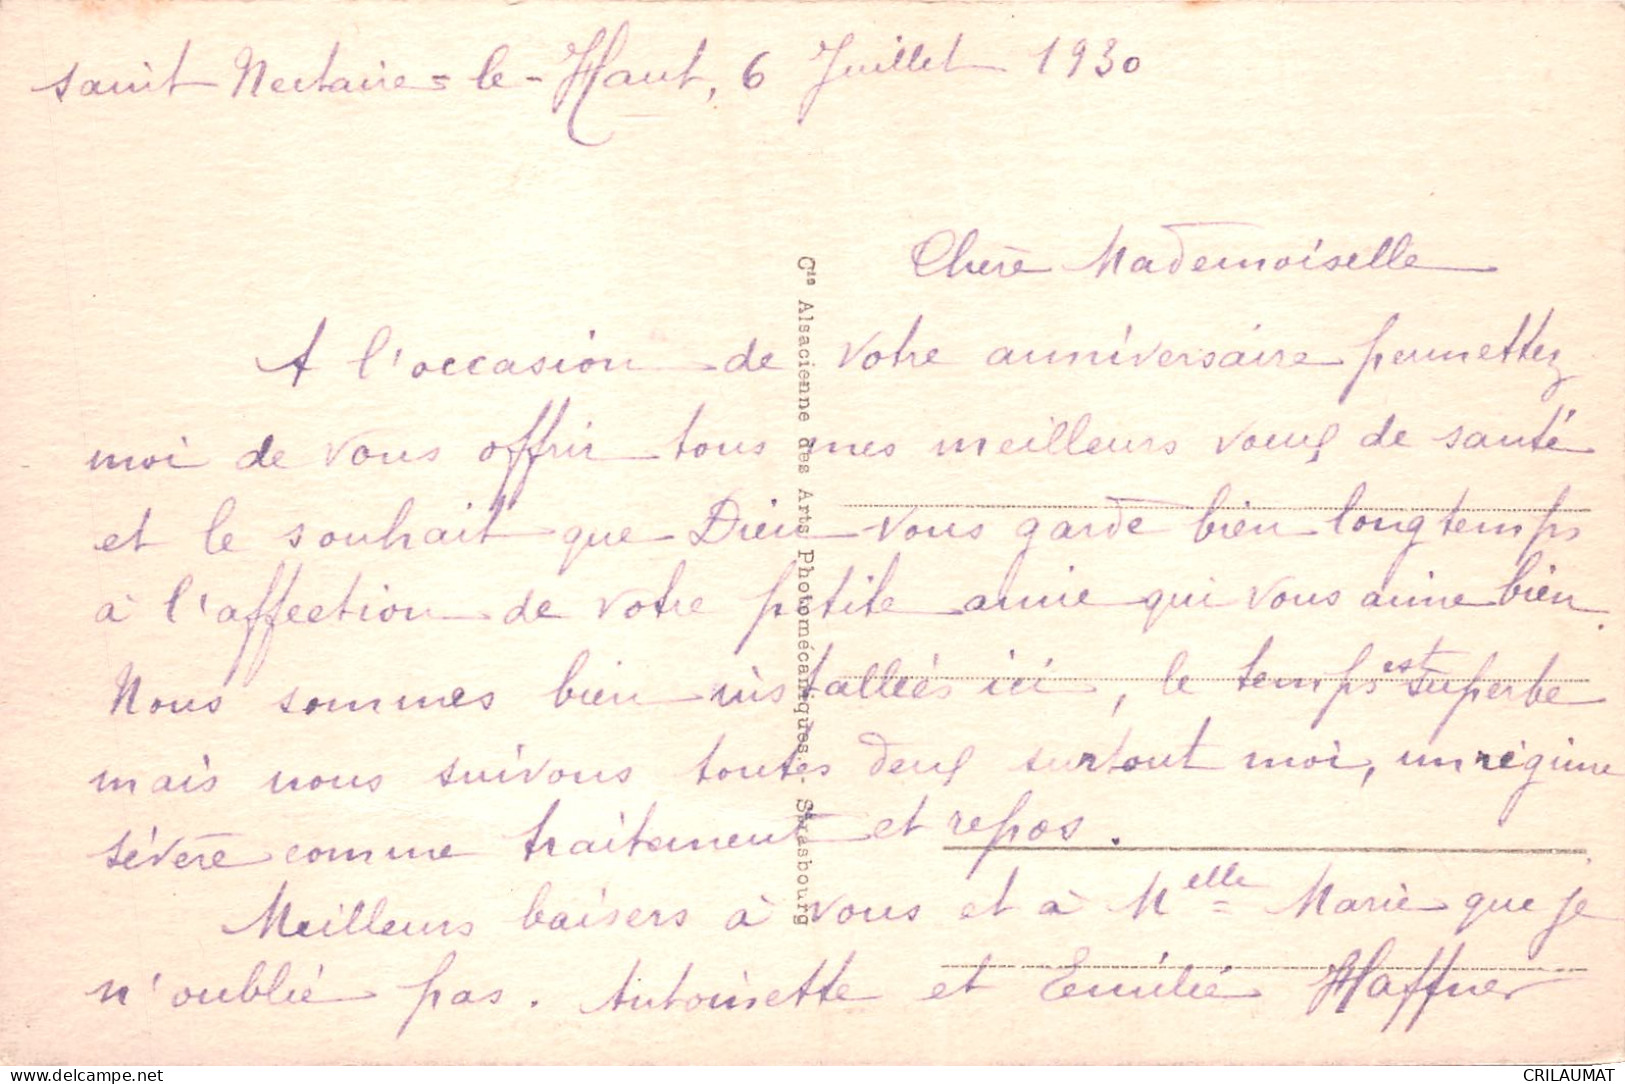 Saint Nectaire=le-Haut, 6 Juillet 1930
Chère Mademoiselle
A l'occasion de votre anniversaire permettez
moi de vous offrir tous mes meilleurs voeux de santé
et le souhait que Dieu vous garde bien longtemps
à l'affection de votre petite amie qui vous aime bien.
Nous sommes bien installées ici, le temps est superbe
mais nous suivons toutes deux surtout moi, un régime
sévère comme traitement et repos.
Meilleurs baisers à vous et à Melle Marie que je
n'oublie pas. Antoinette et Emilie Haffner
Cie Alsacienne des Arts Photomécaniques. Strasbourg
delcampe.net
CRILAUMAT